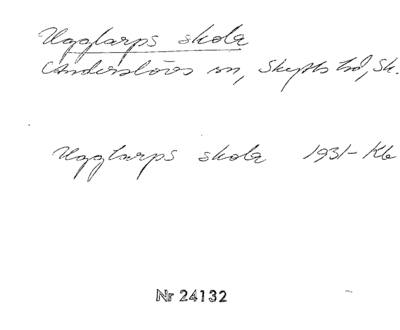 Ugglarps skola
Anderslövs sn, Skytts hd, Sk.
Ugglarps skola 1931- Kb
Nr 24132